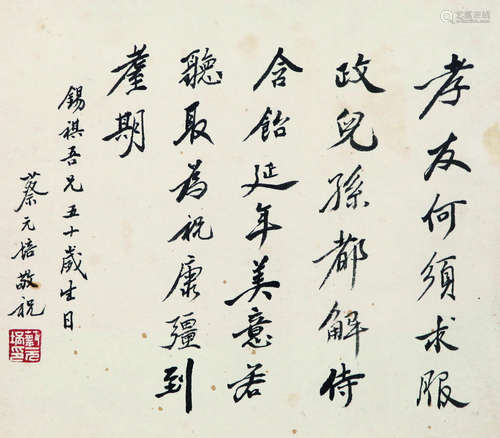 孝友何須求服
政兒孫都解侍
含飴延年美意若
聽取為祝康彊到
耋期
錫祺吾兄五十歲生日
蔡元培敬祝